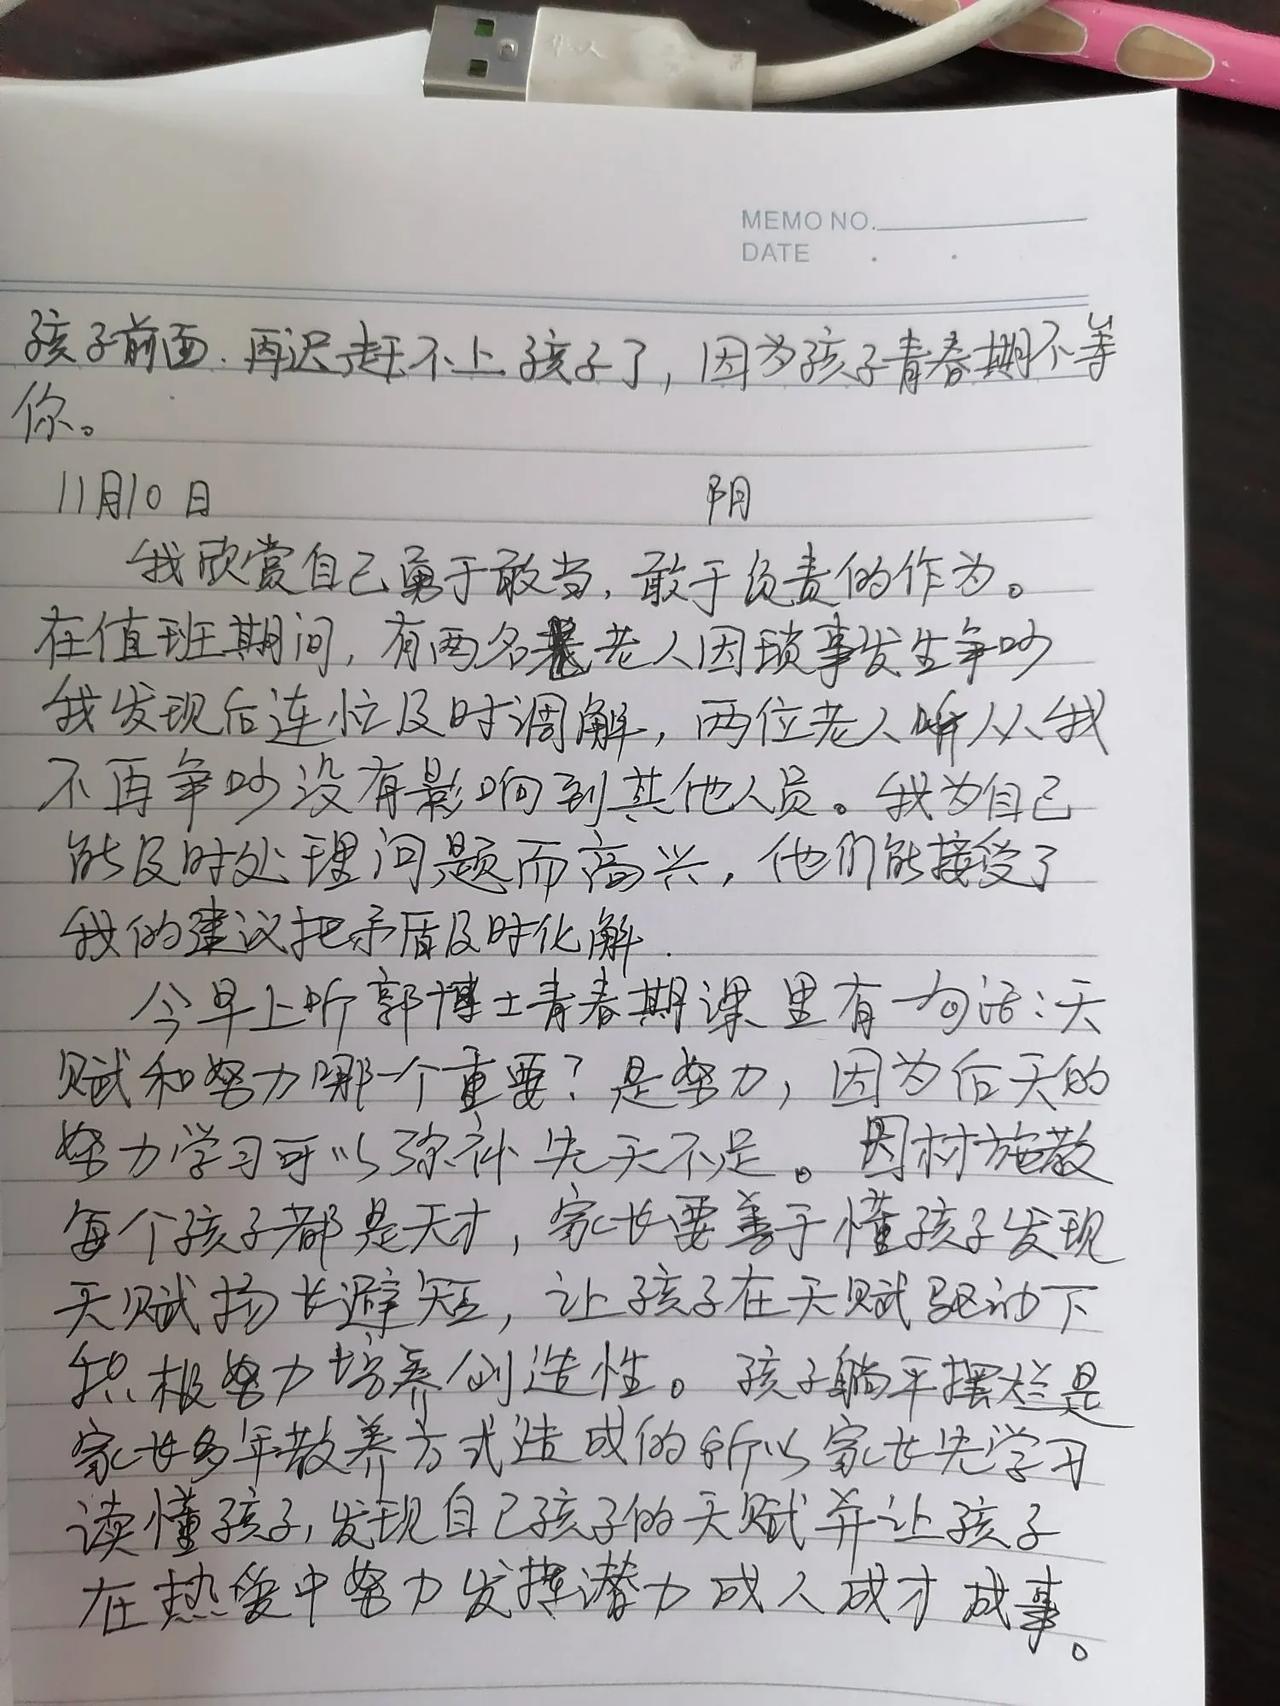 MEMO NO.
DATE . .
孩子前面.再迟赶不上孩子了,因为孩子青春期不等
你。
11月10日 阴
我欣赏自己勇于敢当,敢于负责的作为。
在值班期间,有两名老人因琐事发生争吵
我发现后连忙及时调解,两位老人听从我
不再争吵没有影响到其他人员。我为自己
能及时处理问题而高兴,他们能接受了
我的建议把矛盾及时化解.
今早上听郭博士青春期课里有一句话:天
赋和努力哪一个重要?是努力,因为后天的
努力学习可以弥补先天不足。因材施教
每个孩子都是天才,家长要善于懂孩子发现
天赋扬长避短,让孩子在天赋驱动下
积极努力培养创造性。孩子躺平摆烂是
家长多年教养方式造成的所以家长先学习
读懂孩子,发现自己孩子的天赋并让孩子
在热爱中努力发挥潜力成人成才成事。